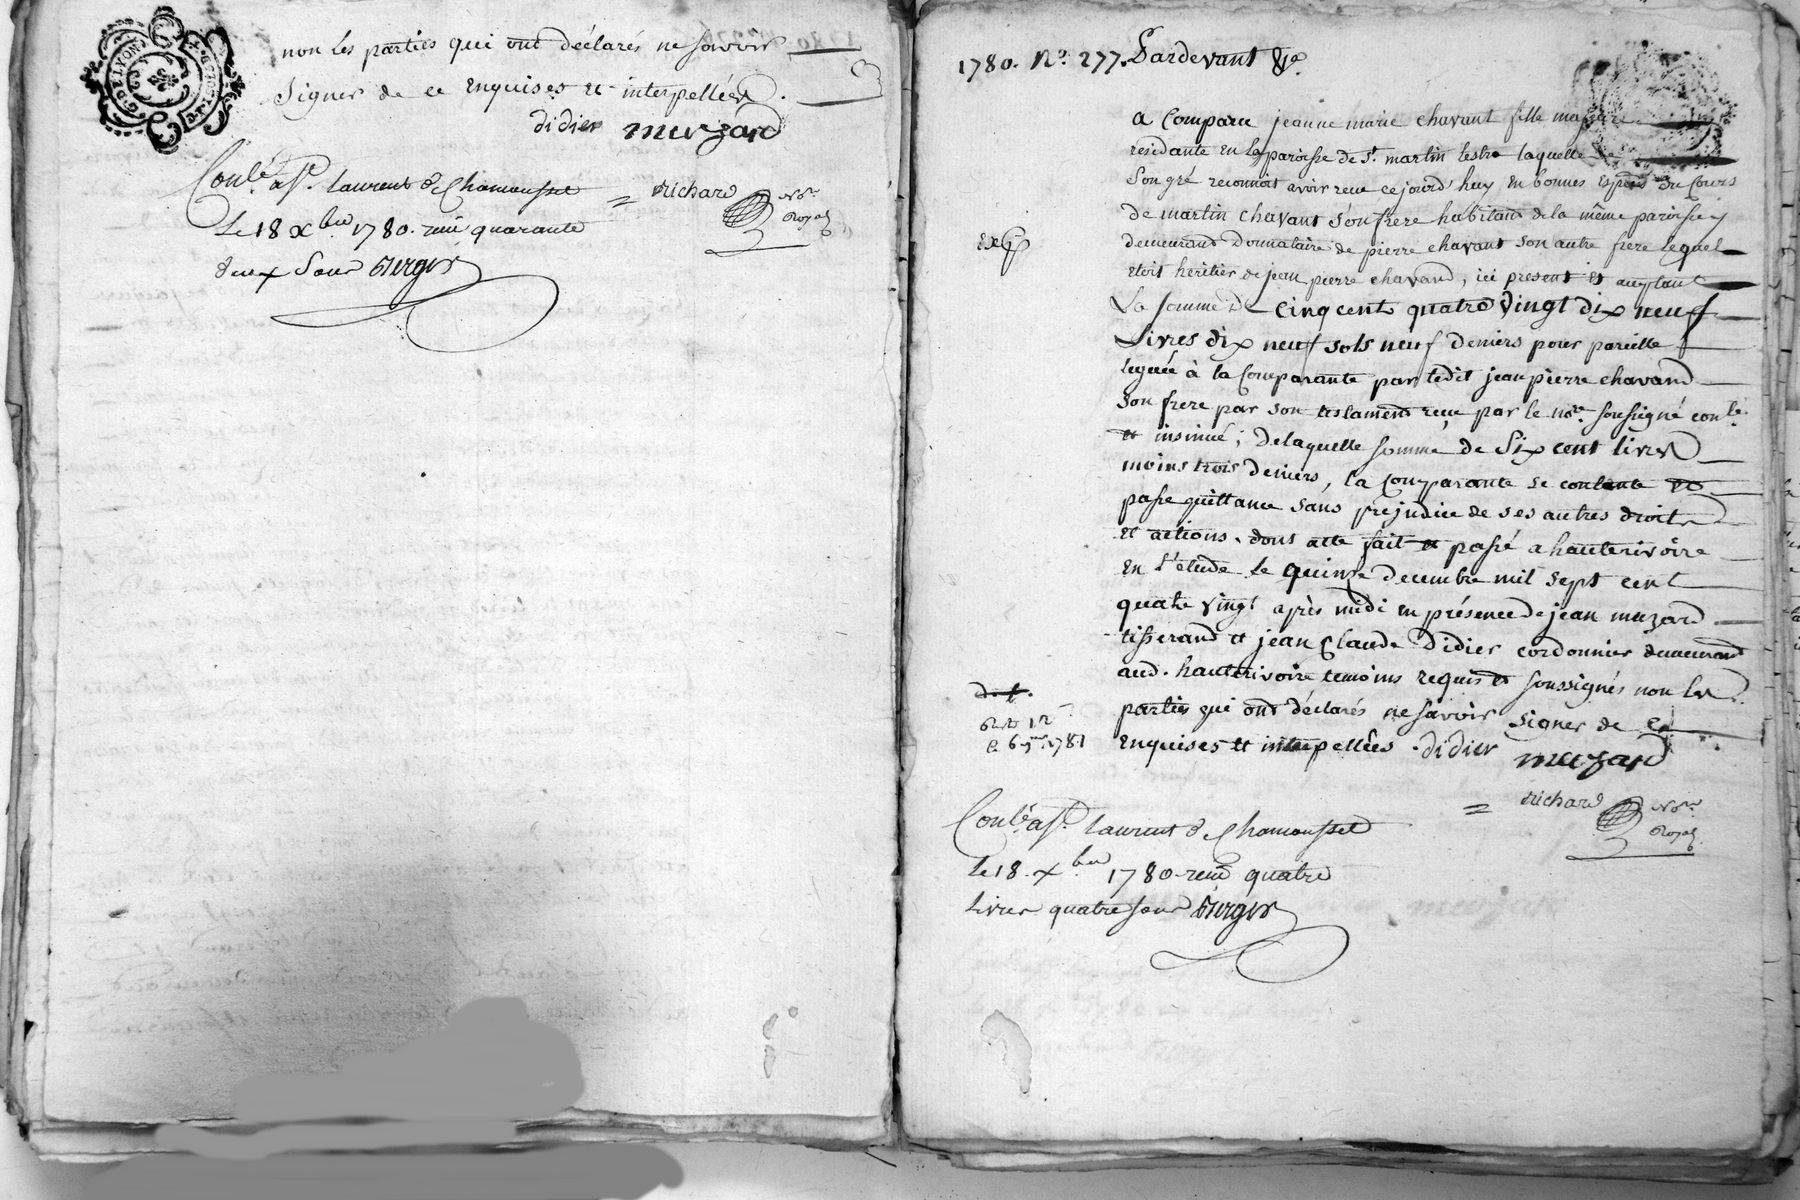 non les parties qui ont déclarés ne savoir
signer de ce enquises et interpellées.
didier muzard
G. DE LYON
Conlé. a St. laurent de Chamousset
= Richard Nore. Royal
Le 18 Xbre 1780. reçu quarante
deux sous Berger
1780. No. 277. Pardevant &c.
a Comparu jeanne marie chavant fille majeure
residante en la paroisse de St. martin lestra laquelle de
son gré reconnoit avoir reçue cejourd'huy en bonnes espèces du Cours
de martin chavant son frere habitant de la même paroisse y
Expé
demeurant Donnataire de pierre chavant son autre frere lequel
etoit heritier de jean pierre chavand, ici present et acceptant
La somme De Cinq cent quatre vingt dix neuf
Livres dix neuf sols neuf deniers pour pareille
leguée à la Comparante par ledit jean pierre chavand
son frere par son testament reçu par le nore. soussigné conlé.
et insinué; de laquelle somme de six cent livres
moins trois deniers, la Comparante se contente et
passe quittance sans préjudice de ses autres droits
et actions. dont acte fait et passé a hauterivoire
en l'etude le quinze decembre mil sept cent
quatre vingt après midi en présence de jean muzard
tisserand et jean Claude Didier cordonnier demeurant
aud. hauterivoire temoins requis et soussignés non les
parties qui ont déclarés ne savoir signer de ce
1781
enquises et interpellées. didier muzard
= Richard Nore. Royal
Conlé a St. laurent de Chamousset
Le 18. Xbre 1780. reçu quatre
livres quatre sous Berger